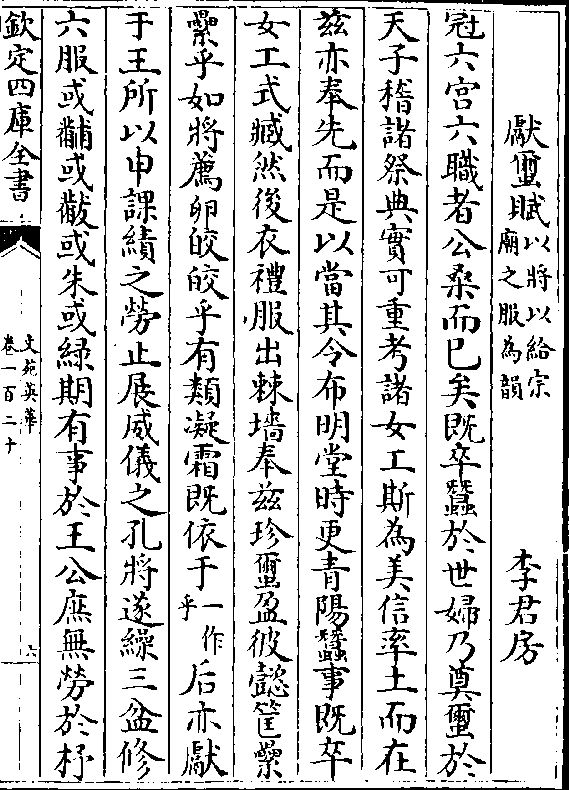 獻璽賦以將以給宗廟之服為韻 李君房
冠六宮六職者公桑而已矣既卒蠶於世婦乃奠璽於
天子稽諸祭典實可重考諸女工斯為美信率土而在
兹亦奉先而是以當其令布明堂時更青陽蠶事既卒
女工式臧然後衣禮服出棘墻奉兹珍璽盈彼懿筐纍
纍乎如將薦卵皎皎乎有類凝霜既依于一作乎后亦獻
于王所以申課績之勞止展威儀之孔將遂繰三盆修
六服或黼或黻或朱或綠期有事於王公庶無勞於杼
欽定四庫全書
文苑英華
卷一百二十
六